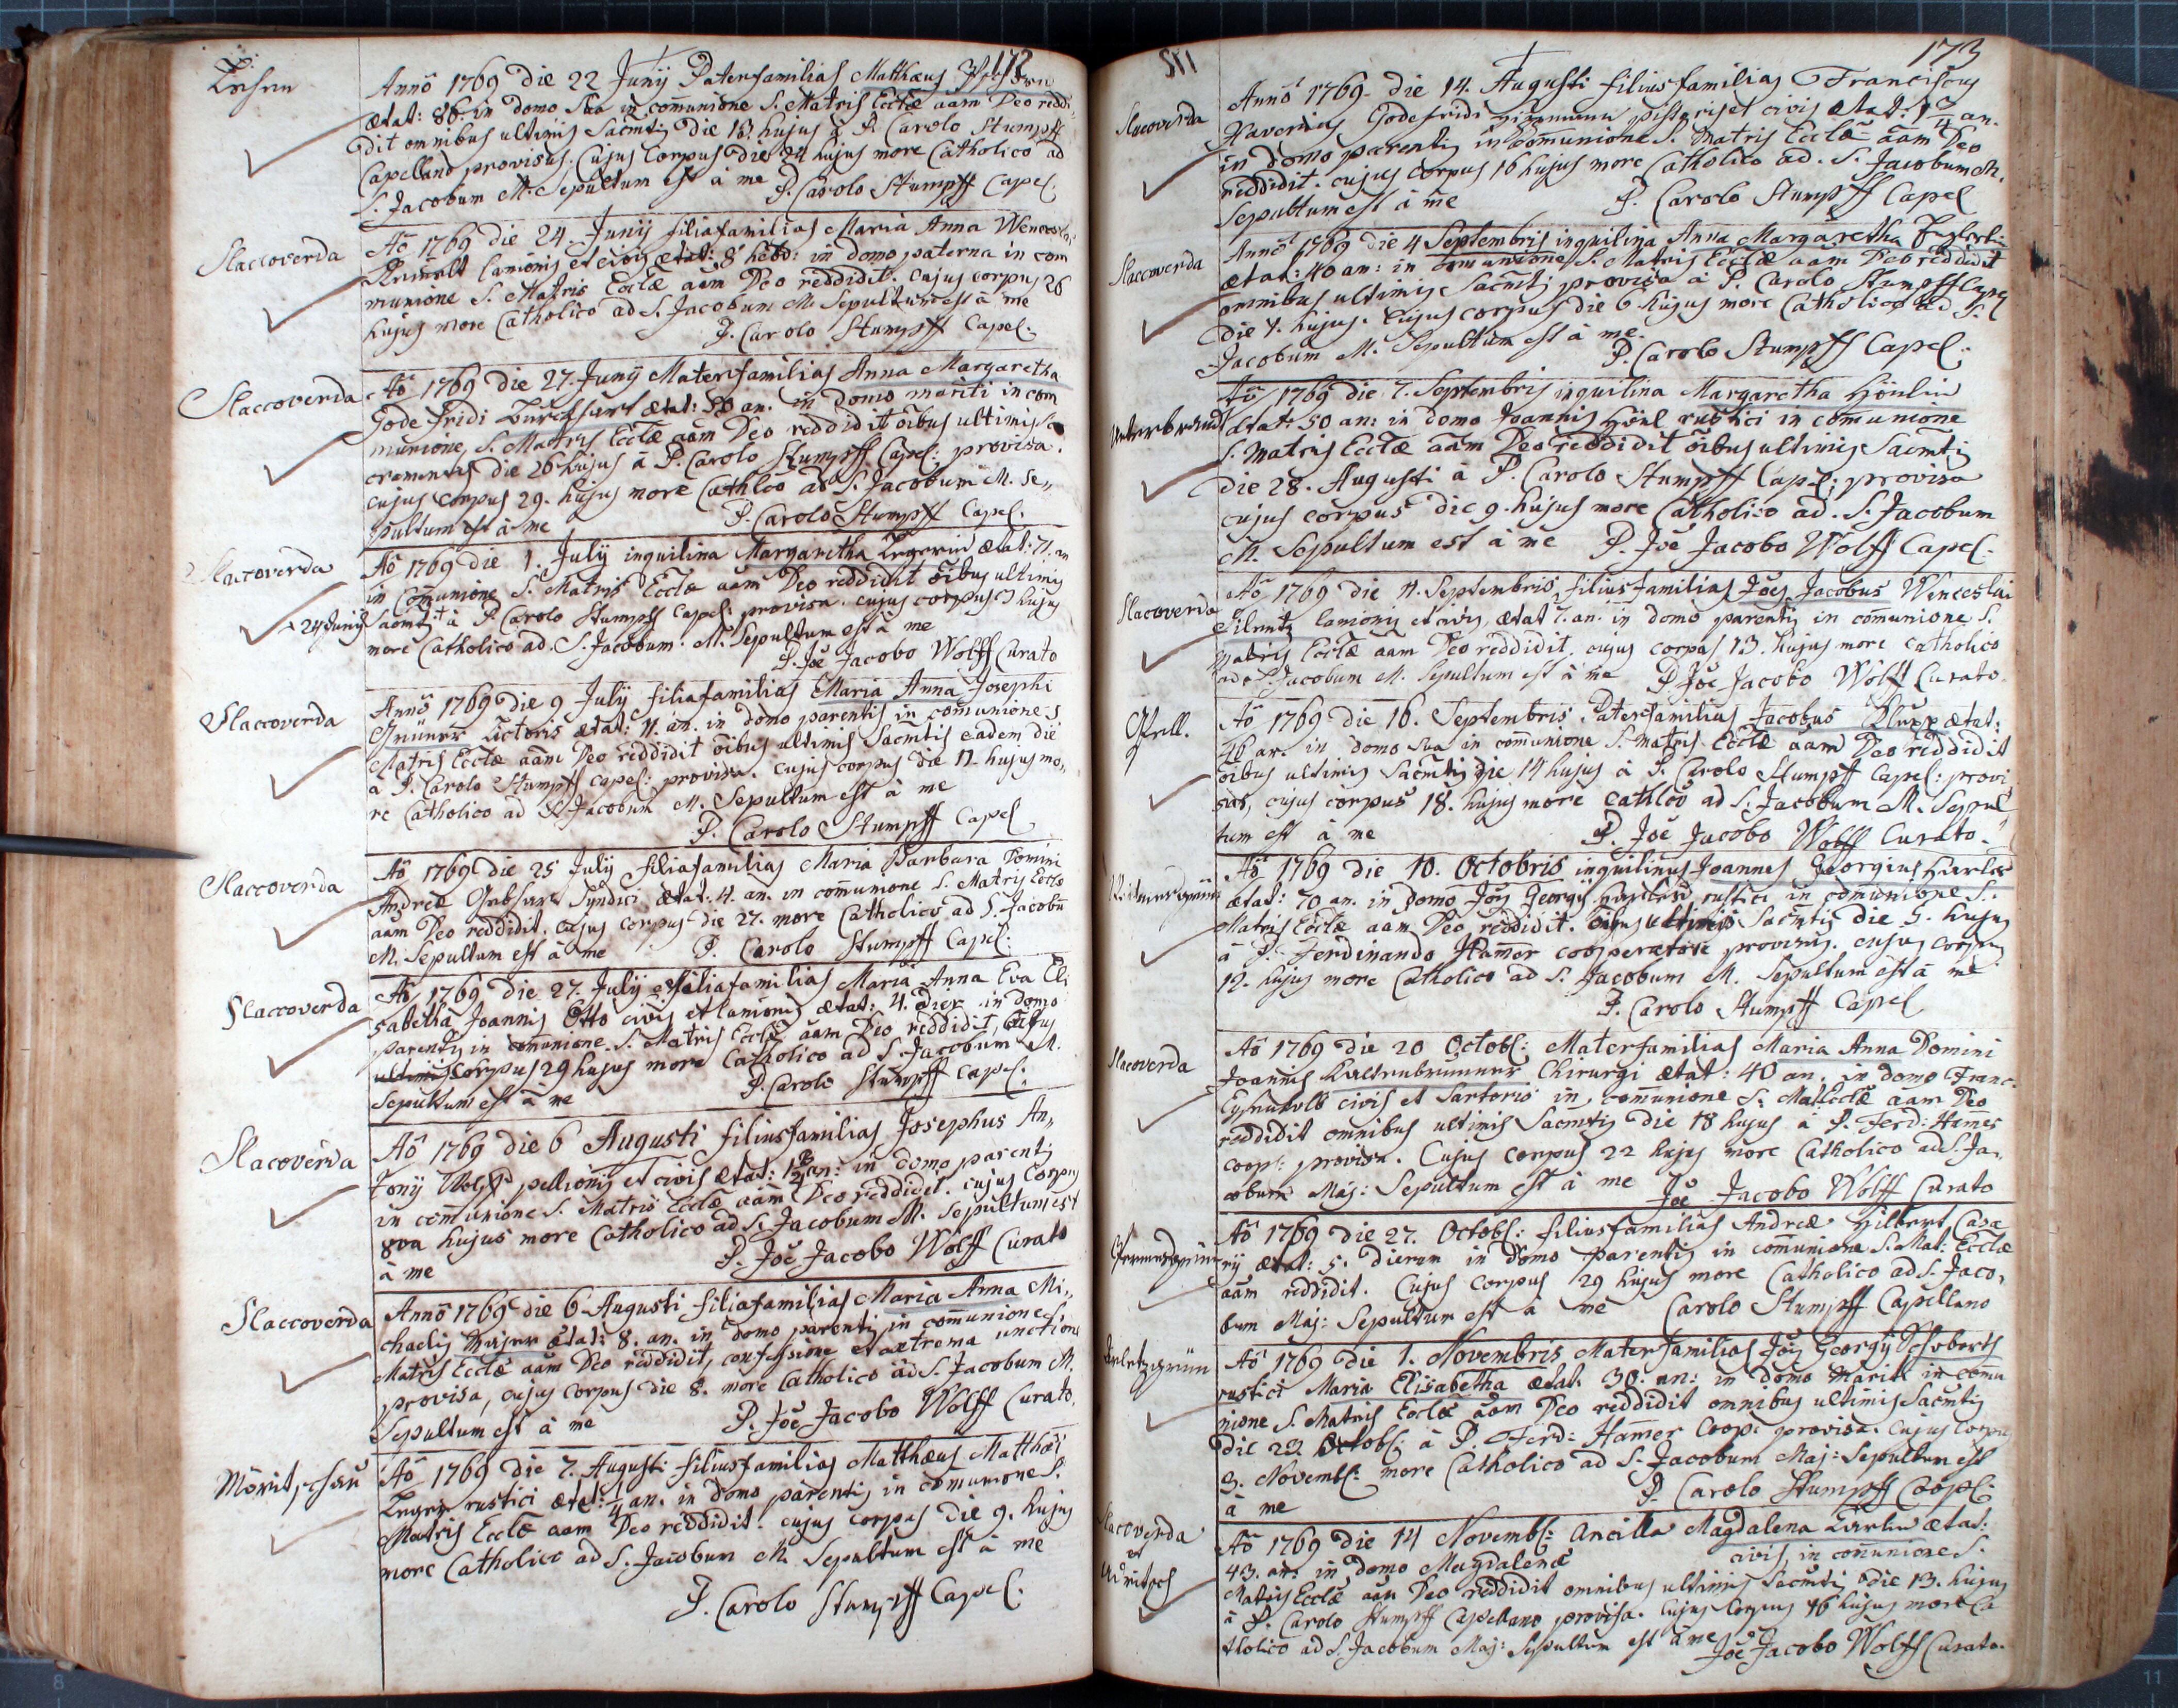 172
Anno 1769 die 22 Junij Paterfamilias Matthæus
ætat: 86. in domo sua in comunione S. Matris Ecclæ aam Deo reddi„
dit omnibus ultimis Sacmtis die 13. hujus à P. Carolo Stumpff
Capellano provisus. Cujus Corpus die 24 hujus more Catholico ad
S. Jacobum M. Sepultum est à me P. Carolo Stumpff Capel.
Slaccoverda
Aõ 1769 die 24. Junij filiafamilias Maria Anna Wenceslai
lanionis et civis ætat: 8 hebd: in domo paterna in com
munione S. Matris Ecclæ aam Deo reddidit. cujus corpus 26
hujus more Catholico ad S. Jacobum M. Sepultum est à me
P. Carolo Stumpff Capel.
Slaccoverda
Aõ 1769 die 27. Junij Materfamilias Anna Margaretha
Godefridi ætat: 50 an. in domo mariti in com
munione, S. Matris Ecclæ aam Deo reddidit oibus ultimis Sa
cramentis die 26 hujus à P. Carolo Stumpff Capel: provisa.
cujus corpus 29. hujus more Cathlco ad S. Jacobum M. Se„
pultum est à me P. Carolo Stumpff Capel.
Slacoverda
Aõ 1769 die 1. Julij inquilina Margaretha Zegerin ætat: 71. an
in Comunione S. Matris Ecclæ aam Deo reddidit oibus ultimis
24 Junij Sacmtis à P. Carolo Stumpff Capel: provisa. cujus corpus 3 hujus
more Catholico ad S. Jacobum. M. Sepultum est à me
P. Joe Jacobo Wolff Curato
Slaccoverda
Anno 1769 die 9 Julij filiafamilias Maria Anna Josephi
Grüner Lictoris ætat: 11. an. in domo parentis in comunione S
Matris Ecclæ aam Deo reddidit oibus ultimis Sacmtis eadem die
à P. Carolo Stumpff capel: provisa. cujus corpus die 11 hujus mo„
re Catholico ad S. Jacobum M. Sepultum est à me
P. Carolo Stumpff Capel
Slaccoverda
Aõ 1769 die 25 Julij filiafamilias Maria Barbara Domini
Andreæ Syndici ætat: 4. an. in comunione S. Matris Ecclæ
aam Deo reddidit. cujus corpus die 27. more Catholico ad S. Jacobu
M. Sepultum est à me P. Carolo Stumpff Capel.
Slaccoverda
Aõ 1769 die 27. Julij filiafamilias Maria Anna Eva Eli
sabetha Joannis Otto civis et lanionis ætat: 4. dier in domo
parentis in comunione S. Matris Ecclæ aam Deo reddidit, cujus
ultimis corpus 29 hujus more Catholico ad S. Jacobum M.
Sepultum est à me P. Carolo Stumpff Capel.
Slacoverda
Aõ 1769 die 6 Augusti filiusfamilias Josephus An„
tonij Wolff pellionis et civis ætat: an: in domo parentis
in comunione S. Matris Ecclæ aam Deo reddidit. cujus Corpus
8va hujus more Catholico ad S. Jacobum M. Sepultum est
à me P. Joe Jacobo Wolff Curato
Slaccoverda
Anno 1769 die 6 Augusti filiafamilias Maria Anna Mi„
chaelis ætat: 8. an. in domo parentis in comunione S
Matris Ecclæ aam Deo reddidit, confessione et extrema unctione
provisa, cujus corpus die 8. more Catholico ad S. Jacobum M.
Sepultum est à me P. Joe Jacobo Wolff Curato.
Aõ 1769 die 7. Augusti filiusfamilias Matthæus Matthæi
Zeger rustici ætat: 1/4 an. in domo parentis in comunione S.
Matris Ecclæ aam Deo reddidit. cujus corpus die 9. hujus
more Catholico ad S. Jacobum M. Sepultum est à me
P. Carolo Stumpff Capel.
173
Slacoverda
Anno 1769 die 14. Augusti filiusfamilias Franciscus
Xaverius Godefridi pistoris et civis ætat: an.
in domo parentis in comunione S. Matris Ecclæ aam Deo
reddidit. cujus corpus 16 hujus more Catholico ad. S. Jacobum M.
Sepultum est à me P. Carolo Stumpff Capel
Slaccoverda
Anno 1769 die 4 Septembris inquilina Anna Margaretha
ætat: 40 an: in comunione S. Matris Ecclæ aam Deo reddidit
omnibus ultimis Sacmtis provisa à P. Carolo Stumpff Capel
die 1. hujus. cujus corpus die 6 hujus more Catholico ad S.
Jacobum M. Sepultum est à me.
P. Carolo Stumpff Capel.
Aõ 1769 die 7. Septembris inquilina Margaretha Hönlin
ætat: 50 an: in domo Joannis Hönl rustici in comunione
S. Matris Ecclæ aam Deo reddidit oibus ultimis Sacmtis
die 28. Augusti à P. Carolo Stumpff Capel: provisa
cujus corpus die 9. hujus more Catholico ad. S. Jacobum
M. Sepultum est à me P. Joe Jacobo Wolff Capel.
Slaccoverda
Aõ 1769 die 11. Septembris filiusfamilias Joes Jacobus Wenceslai
lanionis et civis, ætat 7. an. in domo parentis in comunione S.
Matris Ecclæ aam Deo reddidit. cujus corpus 13. hujus more catholico
ad S. Jacobum M. Sepultum est à me P. Joe Jacobo Wolff Curato.
Gfell.
Aõ 1769 die 16. Septembris Paterfamilias Jacobus ætat:
46 an. in domo sua in comunione S. Matris Ecclæ aam Deo reddidit
oibus ultimis Sacmtis die 14 hujus à P. Carolo Stumpff Capel: provi
sus, cujus corpus 18. hujus more cathlco ad S. Jacobum M. Sepul
tum est à me P. Joe Jacobo Wolff Curato.
Aõ 1769 die 10. Octobris inquilinus Joannes Georgius
ætat: 70 an. in domo Jois Georgij rustici in comunione S.
Matris Ecclæ aam Deo reddidit. oibus ultimis Sacmtis die 5. hujus
à P. Ferdinando Hamer cooperatore provisus. cujus corpus
12. hujus more Catholico ad S. Jacobum M. Sepultum est à me
P. Carolo Stumpff Capel
Slacoverda
Aõ 1769 die 20 Octobl: Materfamilias Maria Anna Domini
Joannis Kaltenbrunner Chirurgi ætat: 40 an. in domo Franc.
civis et Sartoris in comunione S. Mat Ecclæ aam Deo
reddidit omnibus ultimis Sacmtis die 18 hujus à P. Ferd: Hamer
coop: provisa. Cujus corpus 22 hujus more Catholico ad S. Ja„
cobum Maj: Sepultum est à me Joe Jacobo Wolff Curato
Aõ 1769 die 27. Octobl: filiusfamilias Andreæ Hilbert Casa
rij ætat: 5. dierum in domo parentis in comunione S. Mat: Ecclæ
aam reddidit. Cujus corpus 29 hujus more Catholico ad S. Jaco„
bum Maj: Sepultum est à me Carolo Stumpff Capellano
Aõ 1769 die 1. Novembris Materfamilias Jois Georgij Schoberts
rustici Maria Elisabetha ætat. 30. an: in domo mariti in comu
nione S. Matris Ecclæ aam Deo reddidit omnibus ultimis Sacmtis
die 29 Octobl: à P. Ferd: Hamer Coop: provisa. cujus corpus
3. Novembl: more Catholico ad S. Jacobum Maj: Sepultum est
à me P. Carolo Stumpff Coopl:
Slacoverda
et
Aõ 1769 die 14 Novembl: ancilla Magdalena ætat:
43. an. in domo Magdalenæ civis, in comunione S.
Matris Ecclæ aam Deo reddidit omnibus ultimis Sacmtis die 13. hujus
à P. Carolo Stumpff Capellano provisa. Cujus Corpus 16 hujus more Ca
tholico ad S. Jacobum Maj: Sepultum est à me Joe Jacobo Wolff Curato.